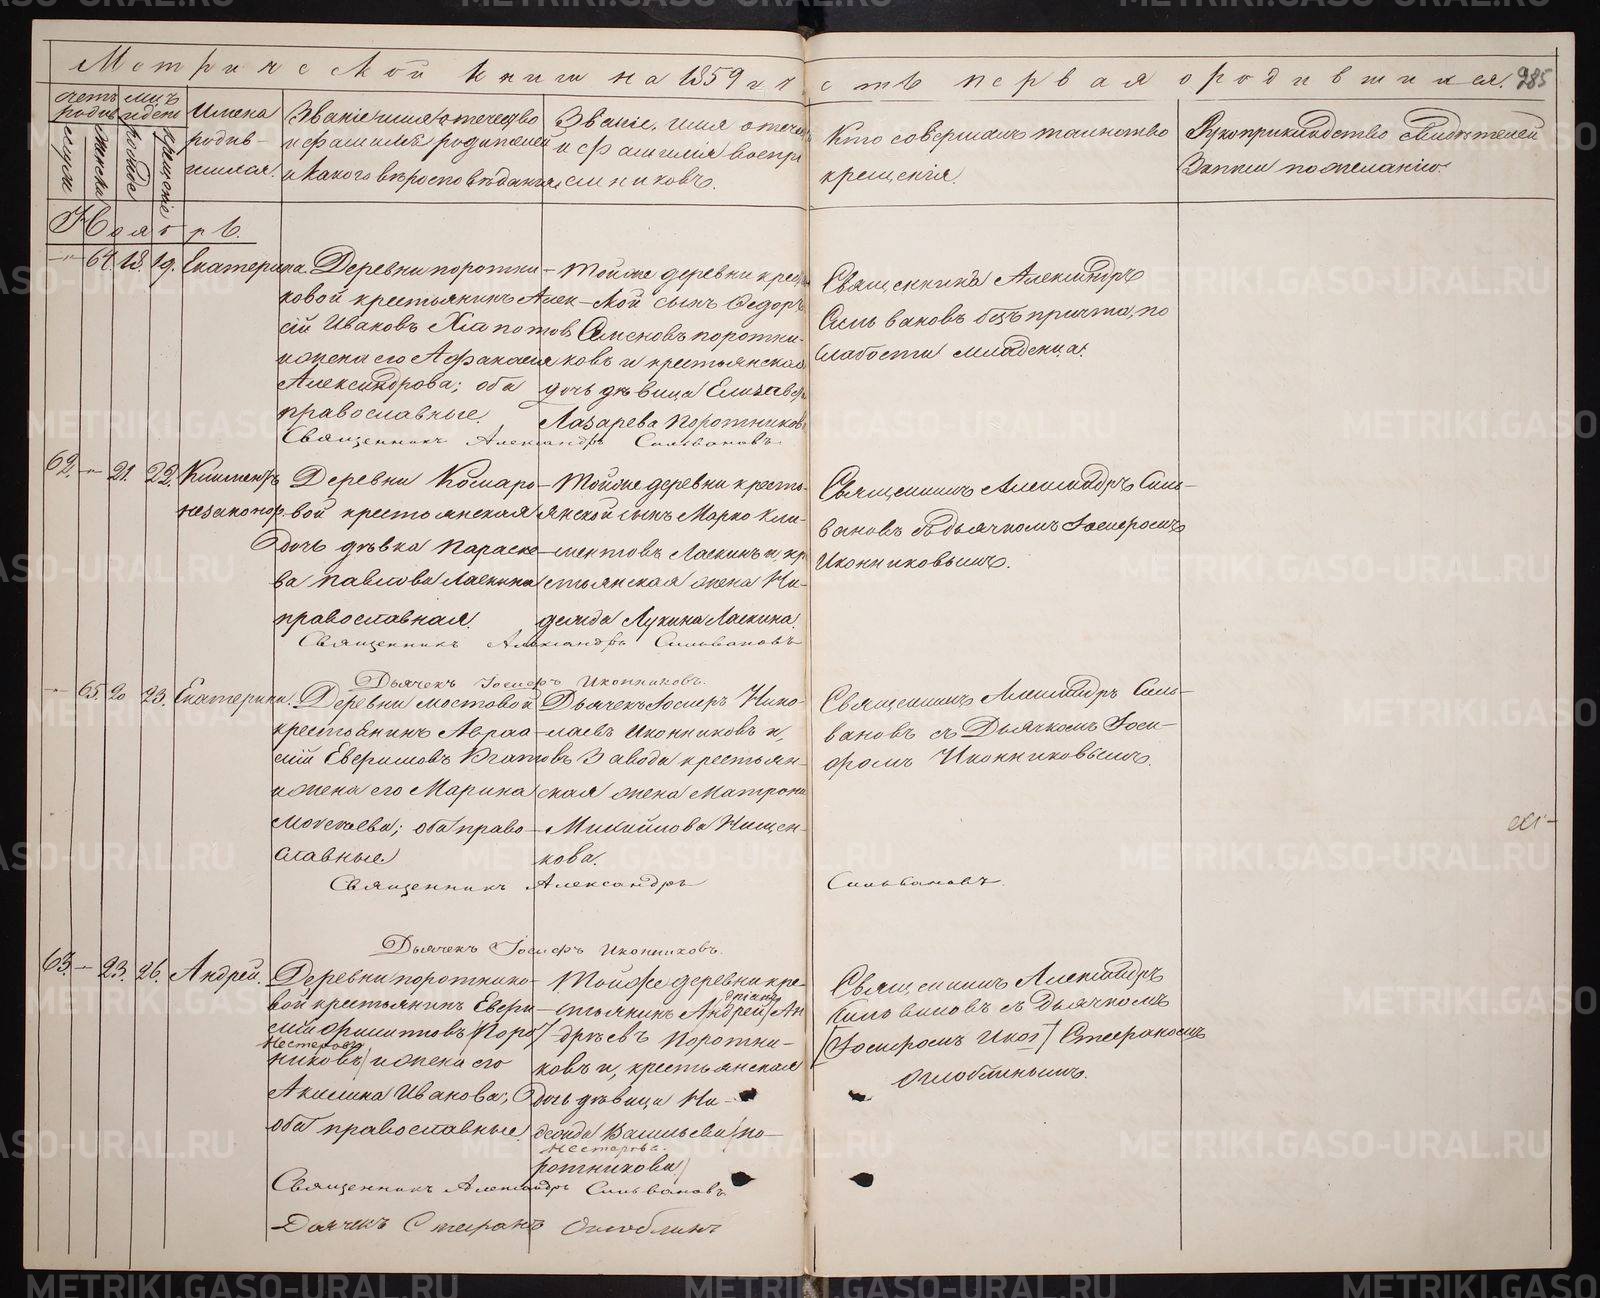 Метрической книги на 1859 г. часть первая о родившихся. 985
Счетъ родив.
Мѣсяцъ и день
мужеска
женска
рожденія
крещенія
Имена родив-
шихся.
Званіе, имя, отечество
и фамилія родителей
и какого вѣроисповѣданія
Званіе, имя, отечес
и фамилія воспрі
емниковъ.
Кто совершалъ таинство
крещенія.
Рукоприкладство свидѣтелей
записи по желанію.
Ноябрь.
—"— 64. 18. 19. Екатерина.
Деревни Поротни-
ковой крестьянинъ Алек-
сій Ивановъ Хлапотов
и жена его Афанасія
Александрова; оба
православные.
Тойже деревни крес
ской сынъ Федоръ
Семеновъ Поротни-
ковъ и крестьянская
дочь дѣвица Елизавѣ
Лазарева Поротников
Священника Александръ
Сильвановъ безъ причта, по
слабости младенца.
Священникъ Александръ Сильвановъ.
62. —"— 21. 22. Климентъ
незаконор.
Деревни Комаро-
вой крестьянская
дочь дѣвка Параске-
ва Павлова Ласкина
православная.
Тойже деревни кресть-
янской сынъ Марко Кли-
ментовъ Ласкинъ и кр
стьянская жена На-
дежда Лукина Ласкина.
Священникъ Александръ Силь-
вановъ съ дьячкомъ Іосифомъ
Иконниковымъ.
Священникъ Александръ Сильвановъ
Дьячекъ Іосифъ Иконниковъ.
—"— 65. 20 23. Екатерина.
Деревни Мостовой
крестьянинъ Авраа-
мій
и жена его Марина
Моисеева; оба право-
славные
Дьячекъ Іосифъ Нико-
лаевъ Иконниковъ и,
Завода крестьян-
ская жена Матрона
Михайлова Нищен-
кова.
Священникъ Александръ Силь-
вановъ съ Дьячкомъ Іоси-
фомъ Иконниковымъ.
Священникъ Александръ Сильвановъ.
Дьячекъ Іосифъ Иконниковъ.
63. — 23. 26. Андрей.
Деревни Поротнико-
вой крестьянинъ Евфи-
мій Филиповъ (Порот
Нестеровъ
никовъ) и жена его
Акилина Иванова;
оба православные.
Тойже деревни кре-
стьянинъ Андрей Ан
дріанъ
дрѣевъ Поротни-
ковъ и, крестьянская
дочь дѣвица На-
дежда Васильева (По-
Нестерова.
ротникова)
Священникъ Александръ
Сильвановъ съ Дьячкомъ
[Іосифомъ Икон] Стефаномъ
Оглоблинымъ.
Священникъ Александръ Сильвановъ
Дьячекъ Стефанъ Оглоблинъ
METRIKI.GASO-URAL.RU